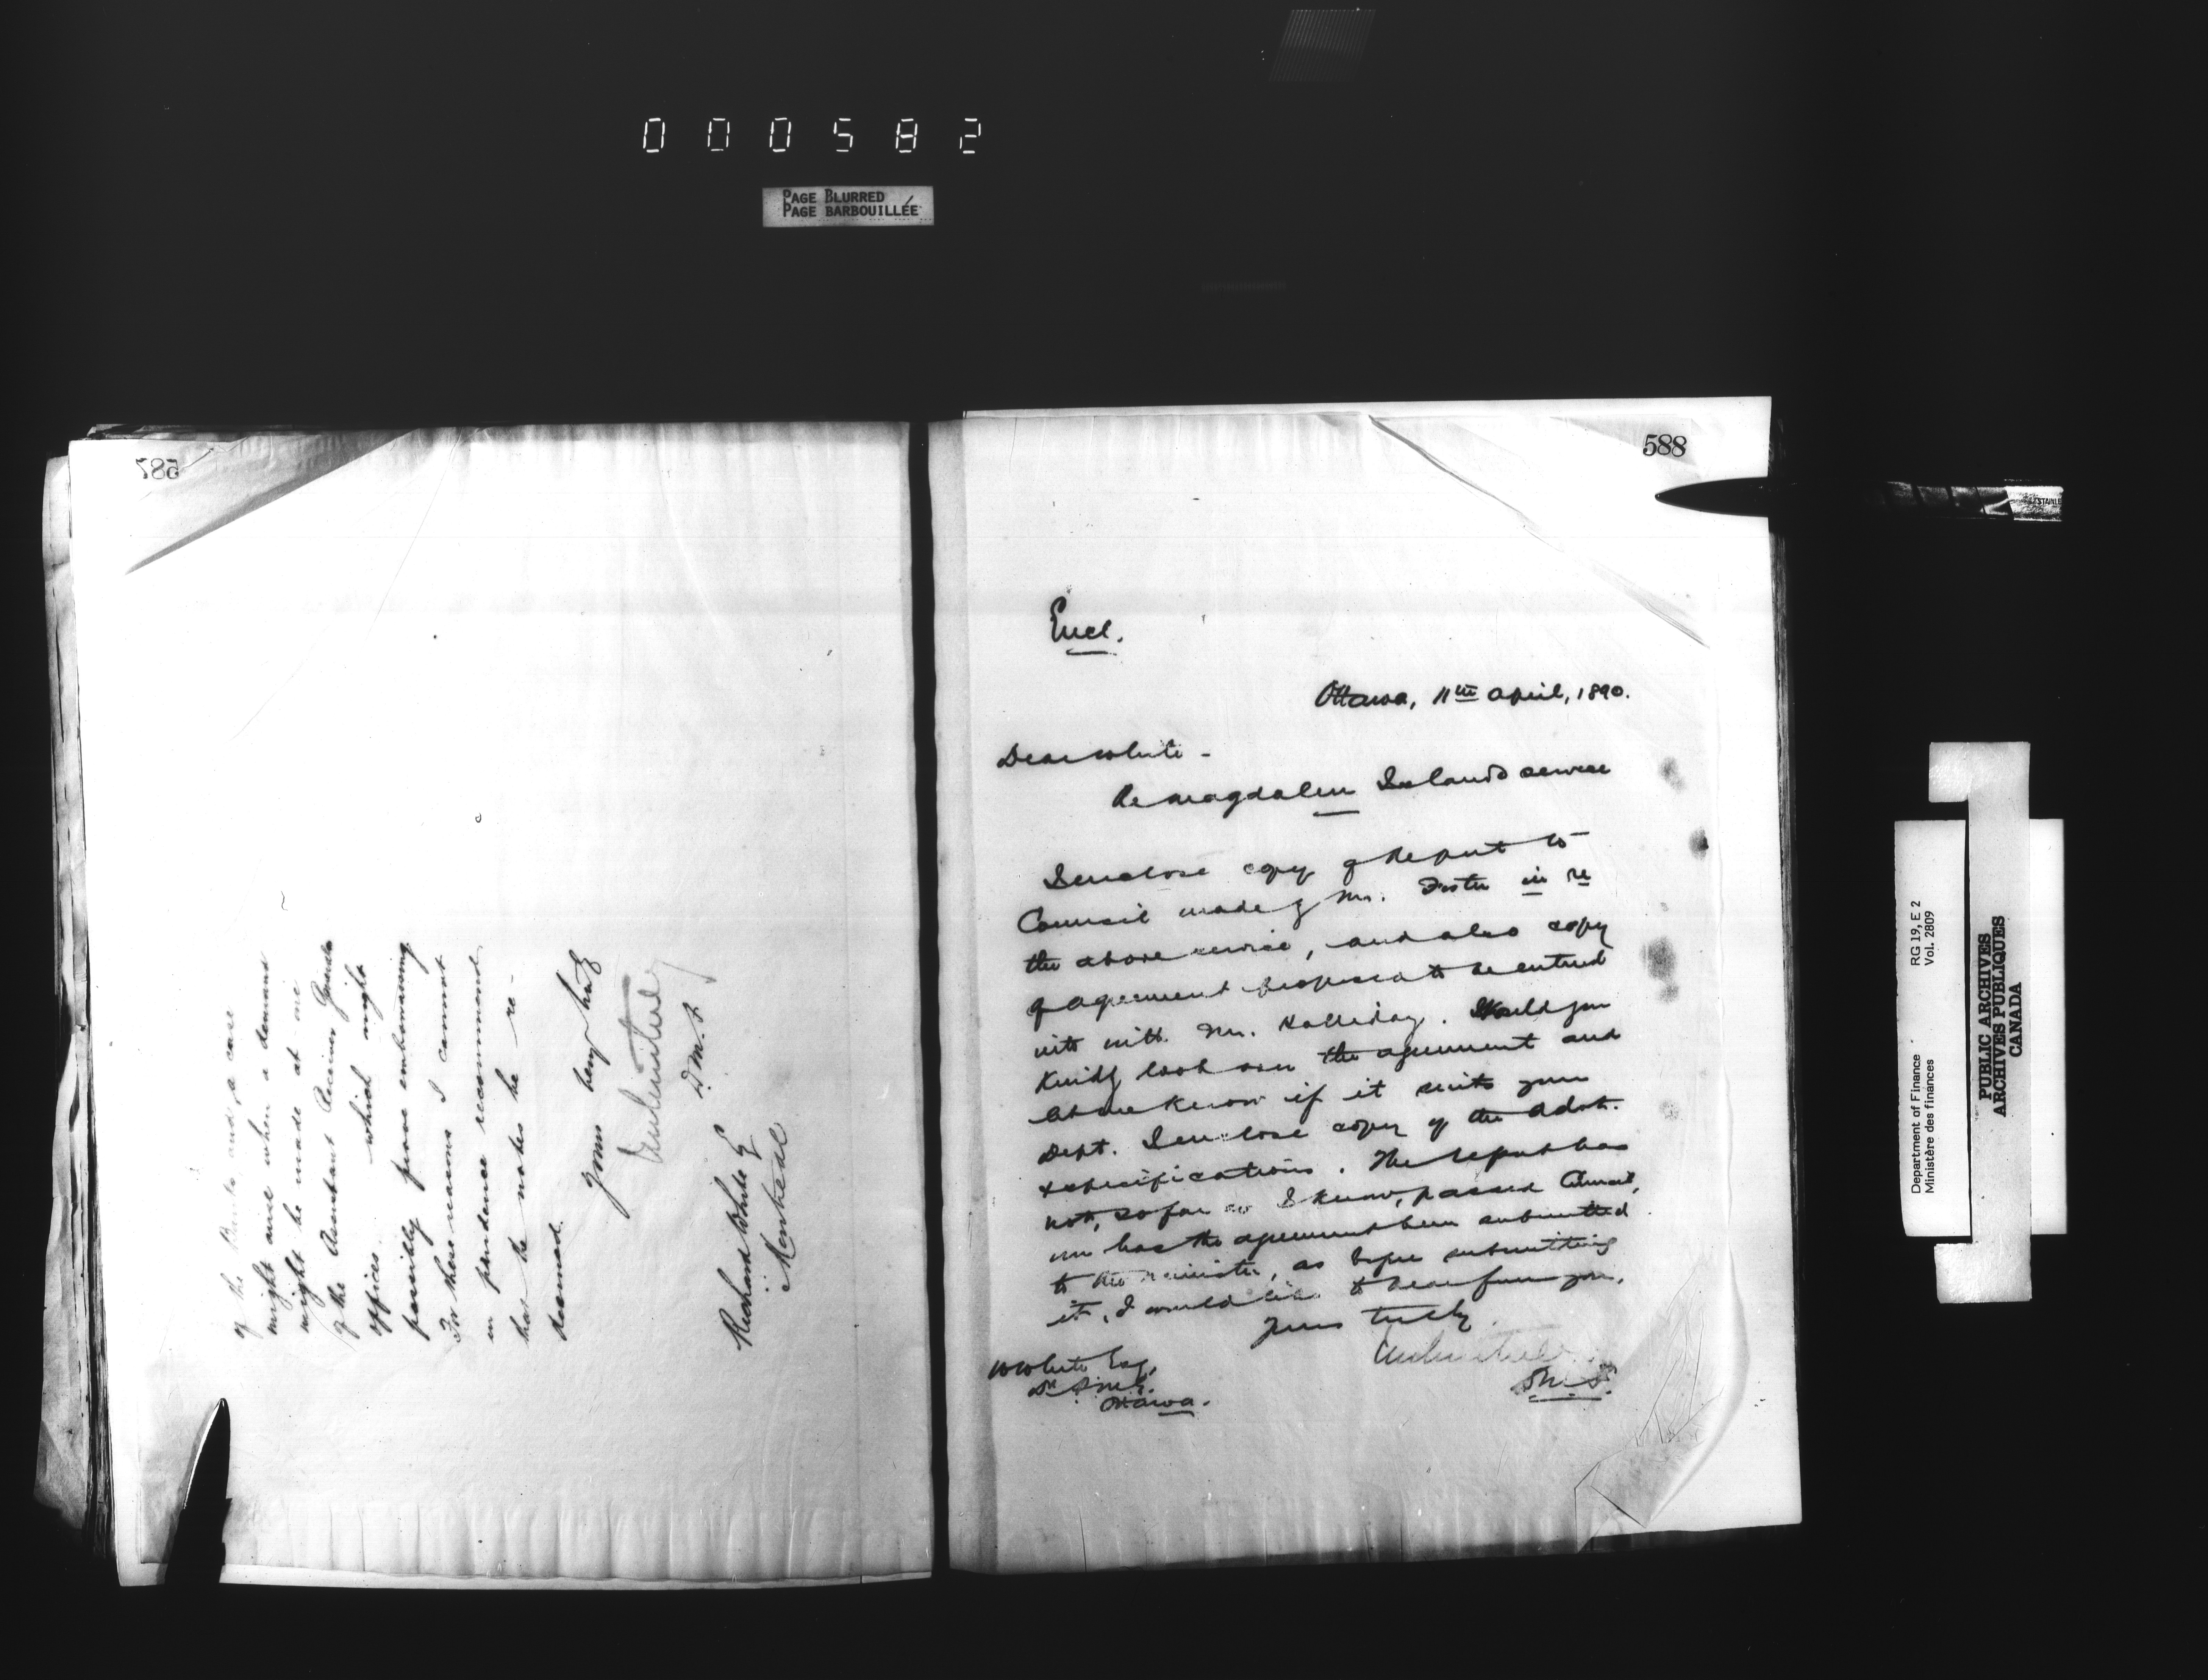 000582
PAGE BLURRED
PAGE BARBOUILLÉE
587
of the Banks and a case
might arise when a demand
might be made at one
of the Assistant Receiver Genls
offices which might
possibly prove embarrassing
For these reasons I cannot
in prudence recommend
that the notes be re-
deemed.
Yours very truly
D.M.F.
Richard White Esq
Montreal
588
Encl.
Ottawa, 11th April, 1890.
Dear White -
Re Magdalen Islands service
I enclose copy of Report to
Council made by Mr. Foster in re
the above service, and also copy
of agreement proposed to be entered
into with Mr. Halliday. Would you
kindly look over the agreement and
let me know if it suits your
Dept. I enclose copy of the Advt.
& specifications. The report has
not, so far as I know, passed Council,
nor has the agreement been submitted
to the Minister, as before submitting
it, I would like to hear from you.
Yours truly
D.M.F.
W White Esq.
D. P.M.G.
Ottawa.
STAINLE
Department of Finance RG 19, E 2
Ministère des finances Vol. 2809
PUBLIC ARCHIVES
ARCHIVES PUBLIQUES
CANADA